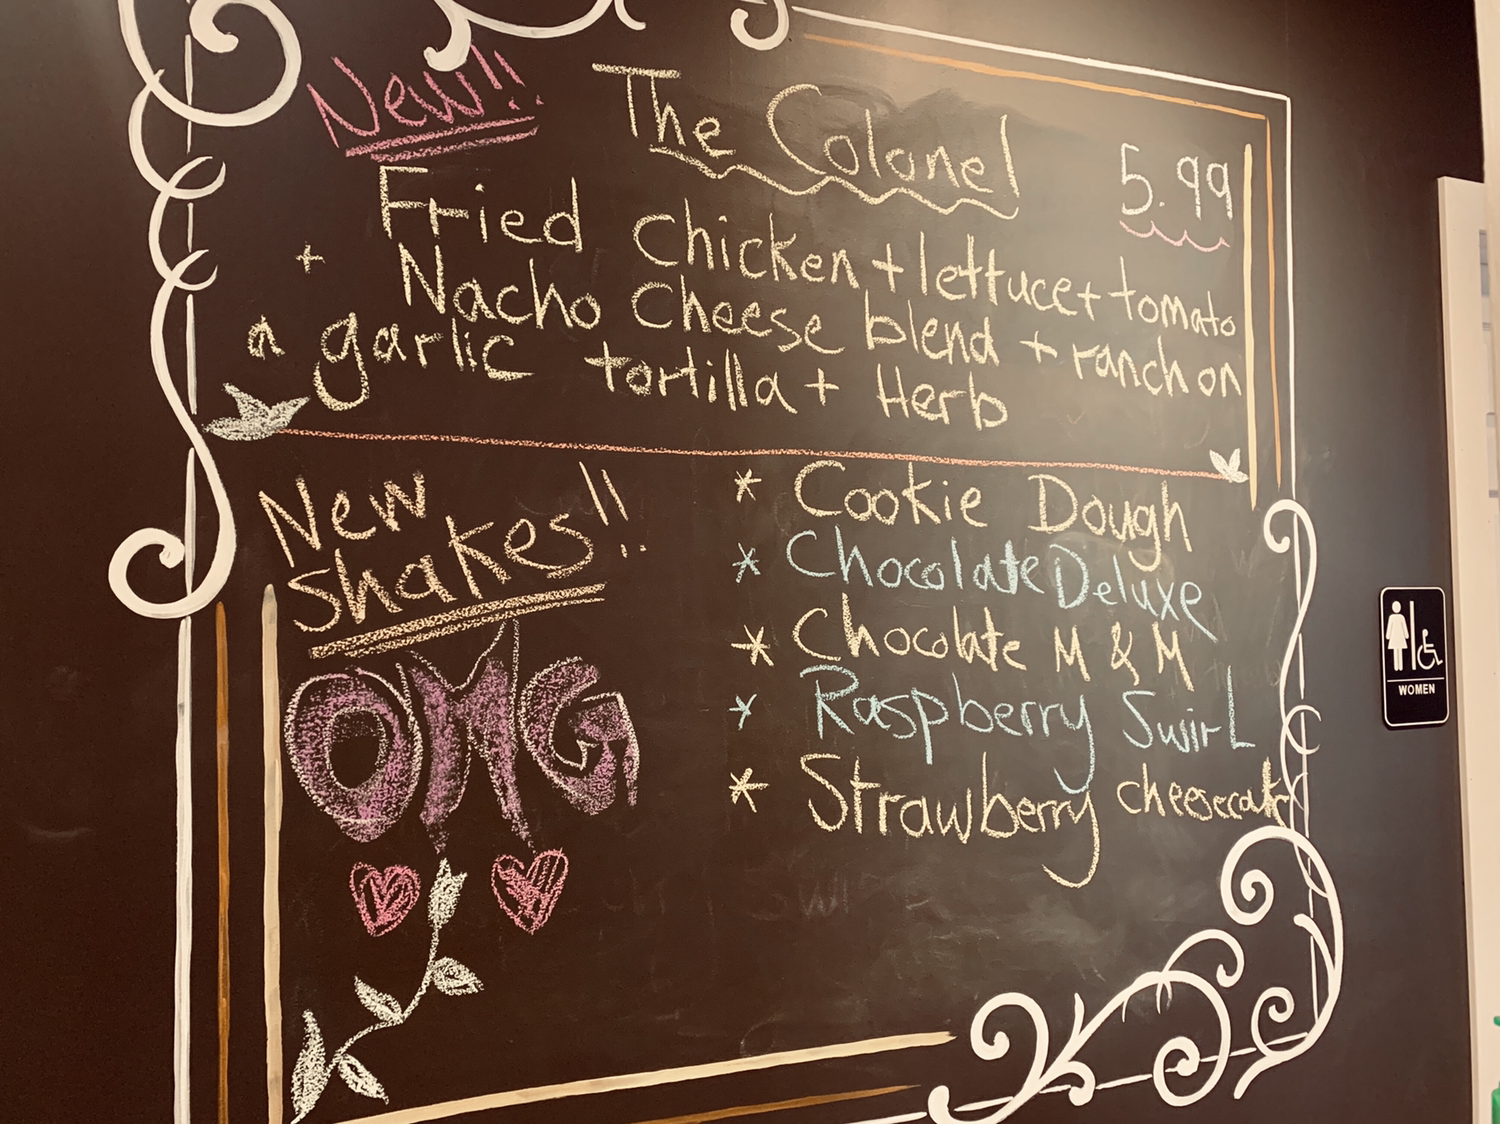 New!!
The Colonel
5.99
Fried chicken + lettuce + tomato
+ Nacho cheese blend + ranch on
a garlic tortilla + Herb
New
Shakes!!
OMG
* Cookie Dough
* Chocolate Deluxe
* Chocolate M & M
* Raspberry Swirl
* Strawberry cheesecake
WOMEN